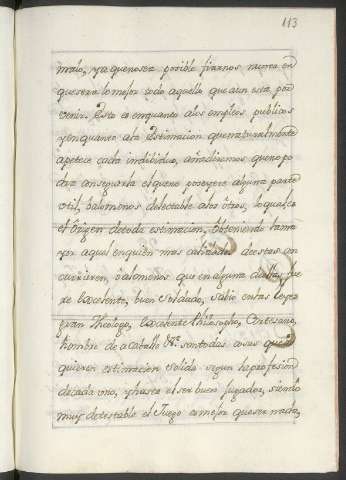 113
malo, ya que no sea posible fixarnos nunca en
que sera lo mejor todo aquello que aun esta por
venir. Esto es en quanto alos empleos publicos
y en quanto ala estimacion que naturalmente
apetece cada individuo, añadiremos que no po
dra conseguirla el que no poseyere alguna parte
util, o alomenos delectable alos otros, lo qual es
el origen de toda estimacion, obteniendo la ma
yor aquel en quien mas calidades de estas con
currieren, o alomenos que en alguna de ellas fue
re excelente, buen soldado, sabio en las leyes
gran Theologo, excelente Philosopho, Cortesano,
hombre de a caballo &c. son todas cosas que ad
quieren estimacion solida segun la profesion
de cada uno, y hasta el ser buen jugador, siendo
muy detestable el juego a mejor que ser nada,